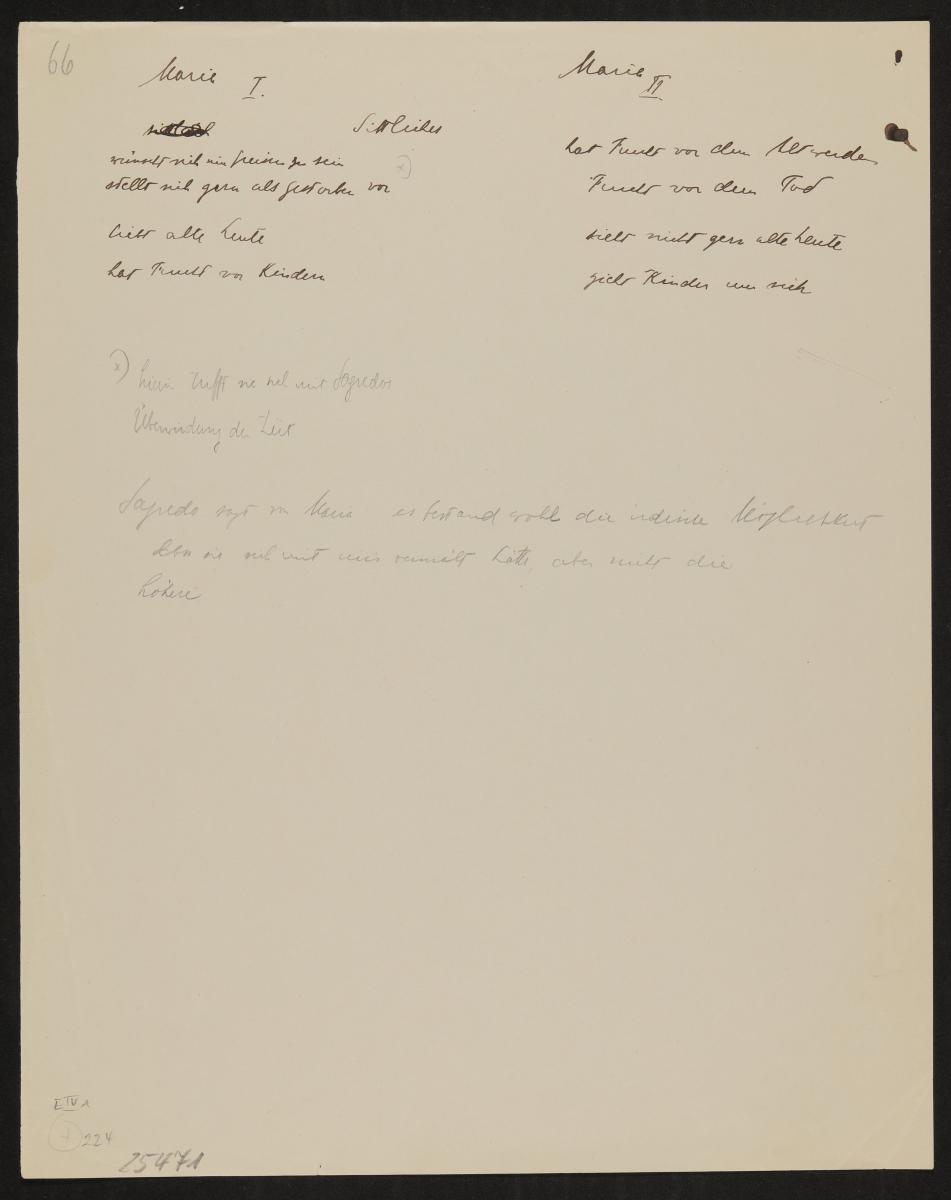 66
Marie I.
Sittliches
wünscht sich ein Greisin zu sein
x)
stellt sich gern als gestorben vor
liebt alte Leute
hat Furcht vor Kindern
Marie II
hat Furcht vor dem Altwerden
Furcht vor dem Tod
sieht nicht gern alte Leute
zieht Kinder um sich
x) hierin trifft sie sich mit Sagredos
Überwindung der Zeit
Sagredo sagt von Maria es bestand wohl die irdische Möglichkeit
dass sie sich mit mir vermält hätte, aber nicht die
höhere
E IV 1
224
25471